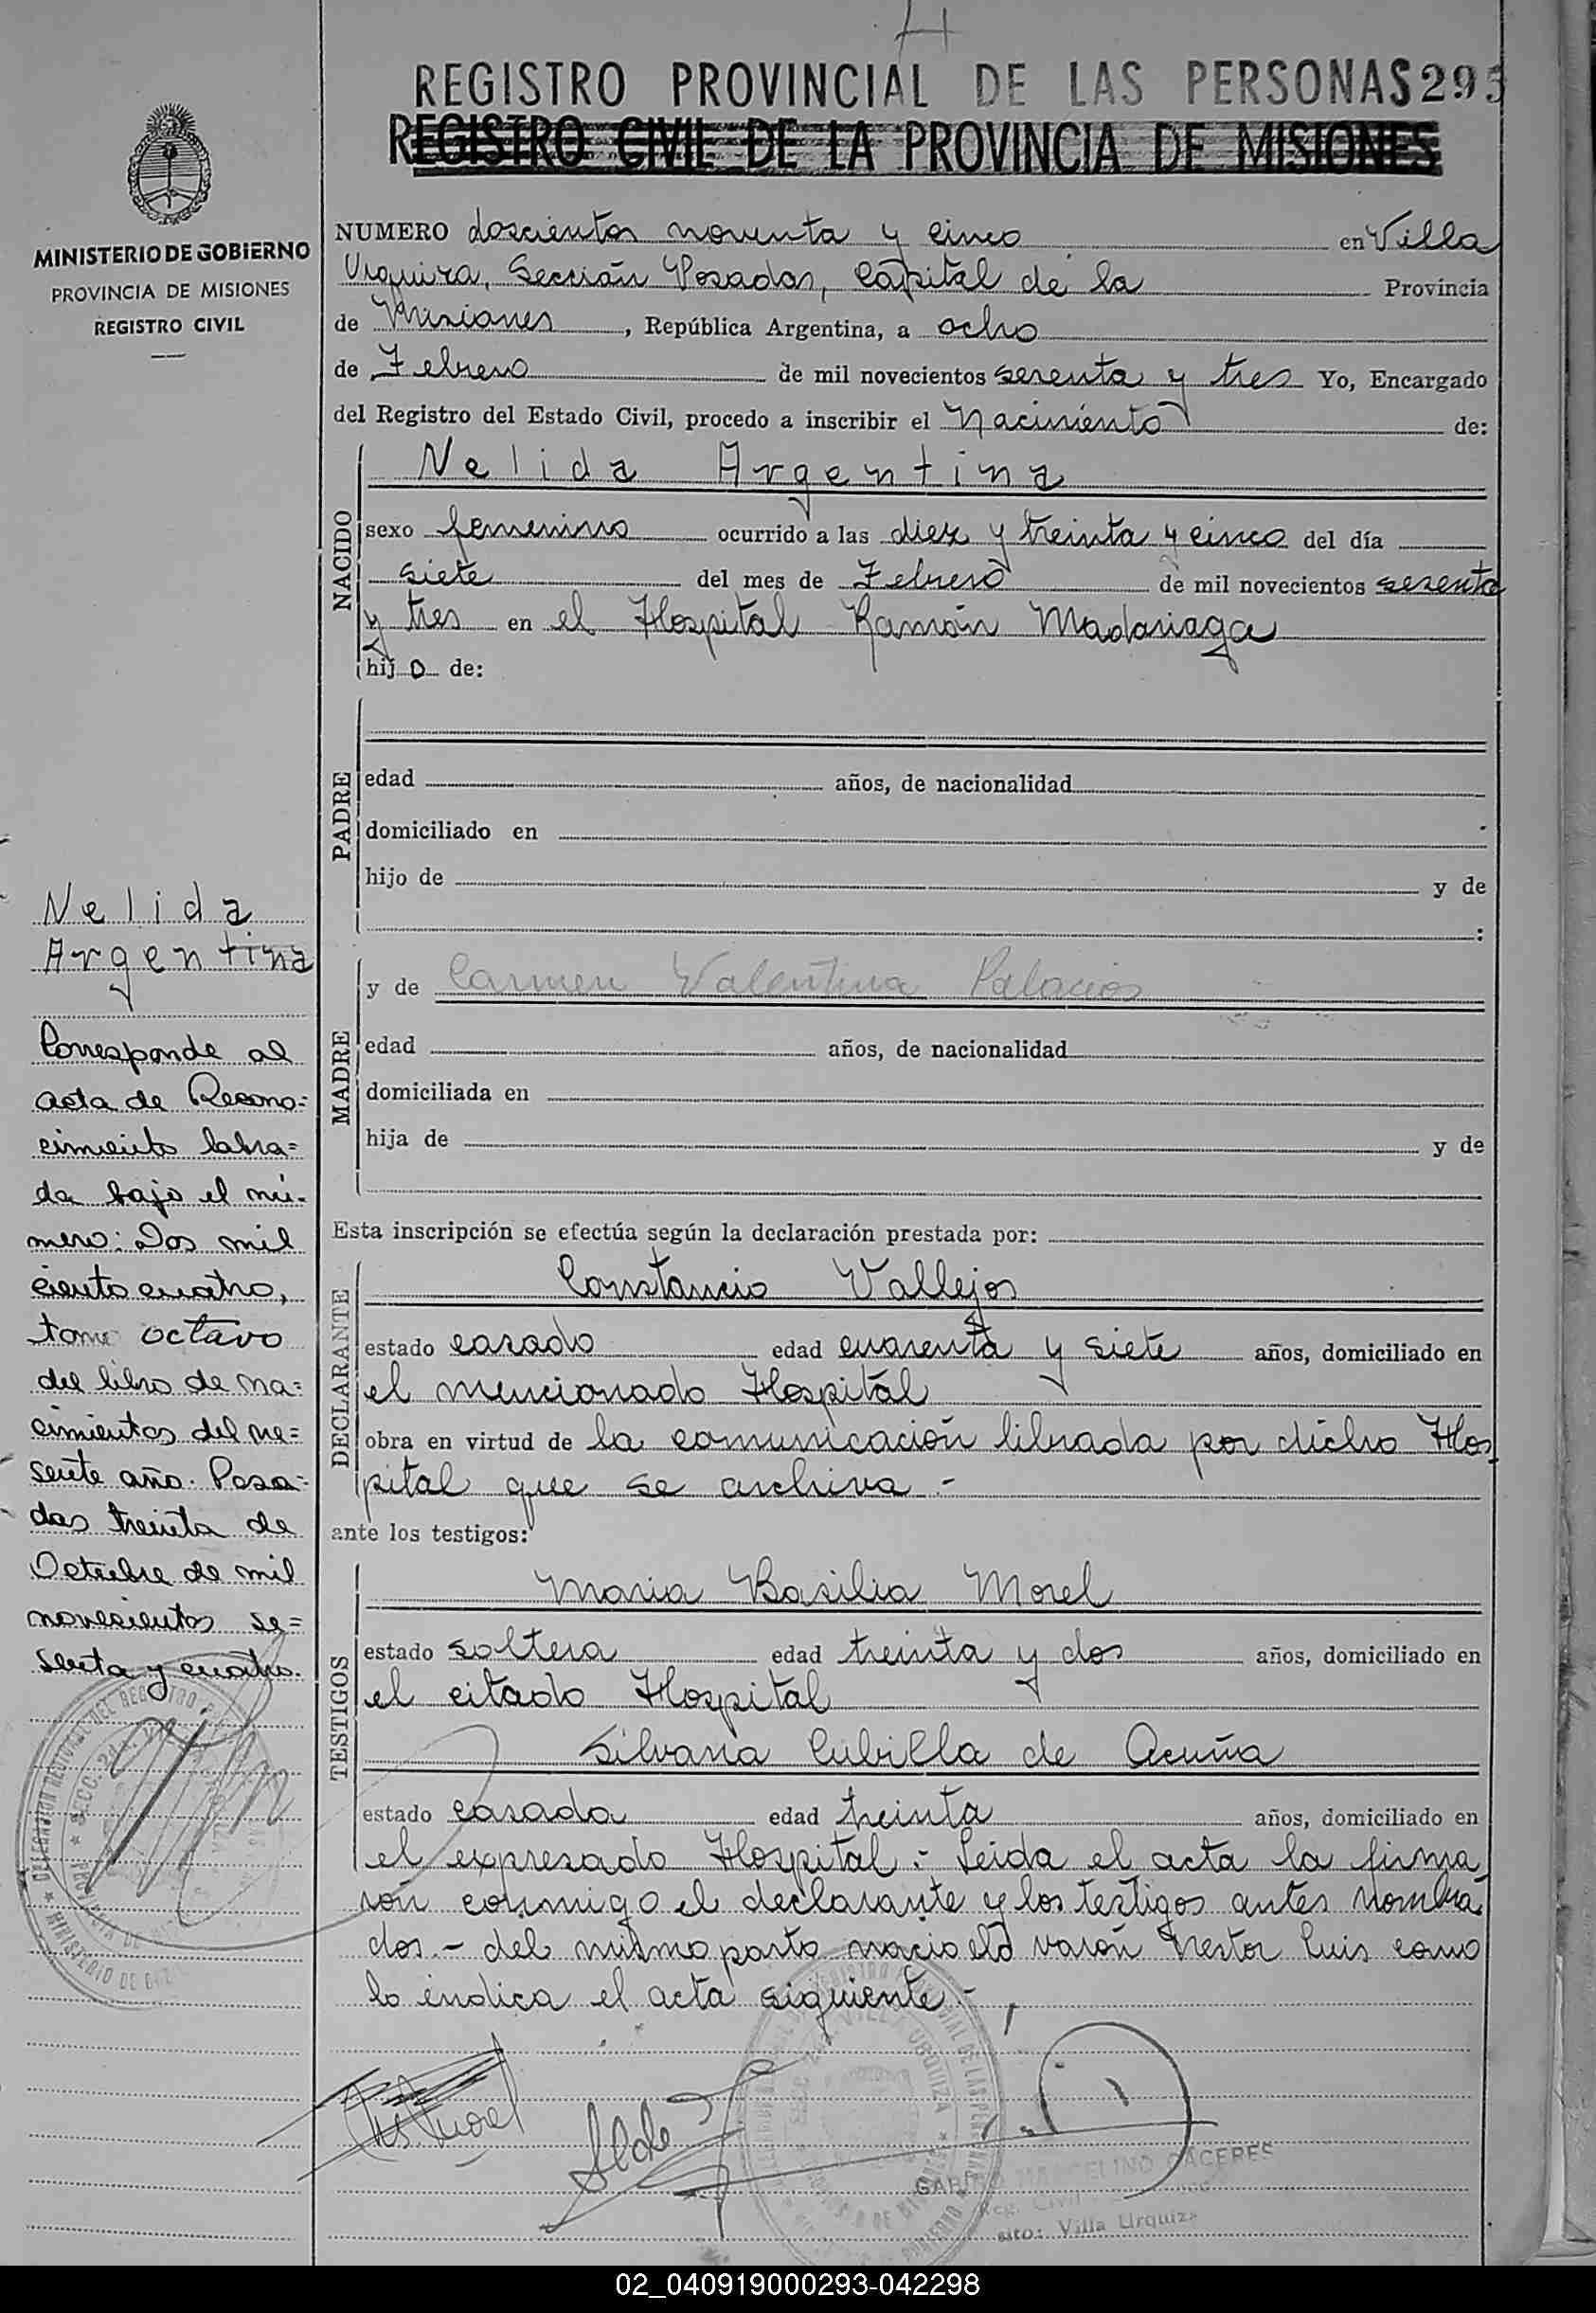 REGISTRO PROVINCIAL DE LAS PERSONAS 295
REGISTRO CIVIL DE LA PROVINCIA DE MISIONES
MINISTERIO DE GOBIERNO
PROVINCIA DE MISIONES
REGISTRO CIVIL
NUMERO doscientos noventa y cinco en Villa
Urquiza, Sección Posadas, Capital de la Provincia
de Misiones, República Argentina, a ocho
de Febrero de mil novecientos sesenta y tres Yo, Encargado
del Registro del Estado Civil, procedo a inscribir el Nacimiento de:
NACIDO
Nelida Argentina
sexo femenino ocurrido a las diez y treinta y cinco del día
siete del mes de Febrero de mil novecientos sesenta
y tres en el Hospital Ramón Madariaga
hijo de:
PADRE
edad años, de nacionalidad
domiciliado en
hijo de y de
:
MADRE
y de Carmen Valentina Palacios
edad años, de nacionalidad
domiciliada en
hija de y de
Esta inscripción se efectúa según la declaración prestada por:
DECLARANTE
Constancio Vallejos
estado casado edad cuarenta y siete años, domiciliado en
el mencionado Hospital
obra en virtud de la comunicación librada por dicho Hos-
pital que se archiva.-
ante los testigos:
TESTIGOS
Maria Basilia Morel
estado soltera edad treinta y dos años, domiciliado en
el citado Hospital
Silvana Cubilla de Acuña
estado casada edad treinta años, domiciliado en
el expresado Hospital.- Leida el acta la firma
ron conmigo el declarante y los testigos antes nombra
dos.- del mismo parto nacio el varón Nestor Luis como
lo indica el acta siguiente.-
Nelida
Argentina
Corresponde al
acta de Recono=
cimiento labra=
da bajo el nú-
mero: Dos mil
ciento cuatro,
tomo octavo
del libro de na=
cimientos del pre=
sente año. Posa=
das treinta de
Octubre de mil
novecientos se=
senta y cuatro.
MARCELINO CACERES
Reg. Civil
Villa Urquiza
02_040919000293-042298